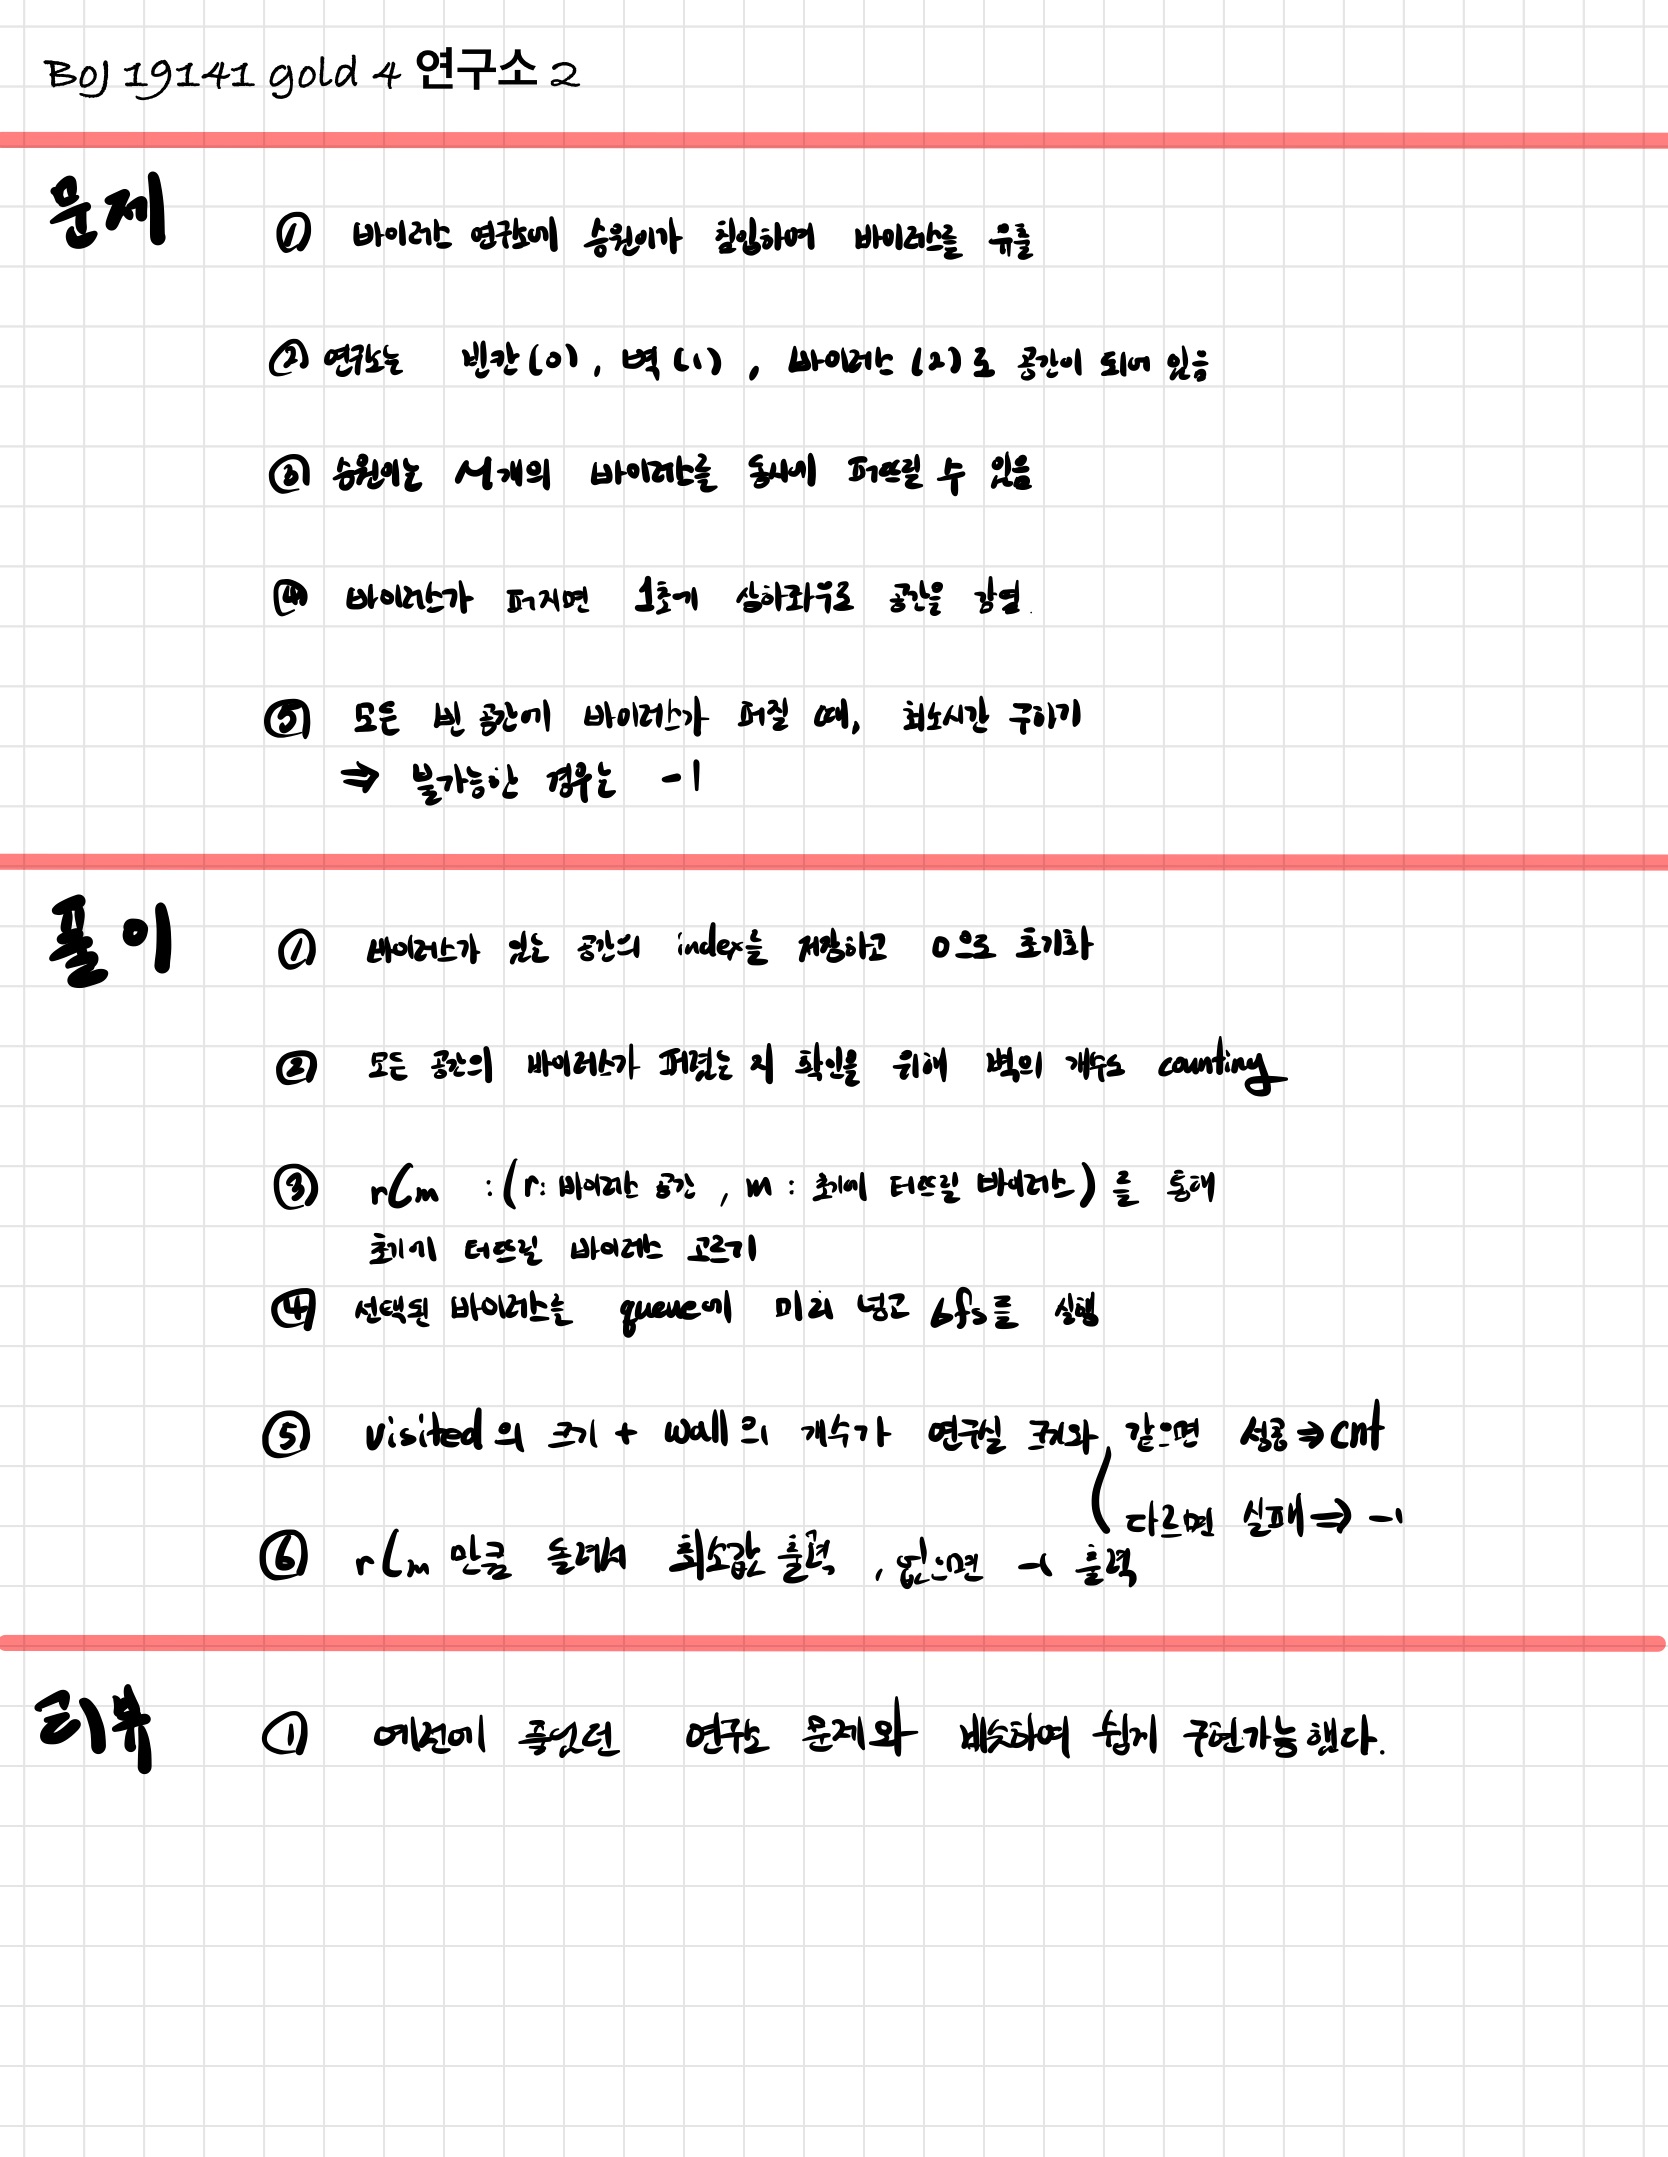 BOJ 19141 gold 4 연구소 2
문제
① 바이러스 연구소에 승원이가 침입하여 바이러스를 유출
② 연구소는 빈칸(0), 벽(1), 바이러스(2)로 공간이 되어 있음
③ 승원이는 M개의 바이러스를 동시에 퍼뜨릴 수 있음
④ 바이러스가 퍼지면 1초에 상하좌우로 공간을 감염.
⑤ 모든 빈 공간에 바이러스가 퍼질 때, 최소시간 구하기
⇒ 불가능한 경우는 -1
풀이
① 바이러스가 있는 공간의 index를 저장하고 0으로 초기화
② 모든 공간의 바이러스가 퍼졌는 지 확인을 위해 벽의 개수도 counting
③ rCm : (r: 바이러스 공간, m: 초기에 터뜨릴 바이러스)를 통해
초기에 터뜨릴 바이러스 고르기
④ 선택된 바이러스를 queue에 미리 넣고 bfs를 실행
⑤ visited의 크기 + wall의 개수가 연구실 크기와 같으면 성공 ⇒ cnt
다르면 실패 ⇒ -1
⑥ rCm 만큼 돌려서 최소값 출력, 없으면 -1 출력
리뷰
① 예전에 풀었던 연구소 문제와 비슷하여 쉽게 구현가능했다.